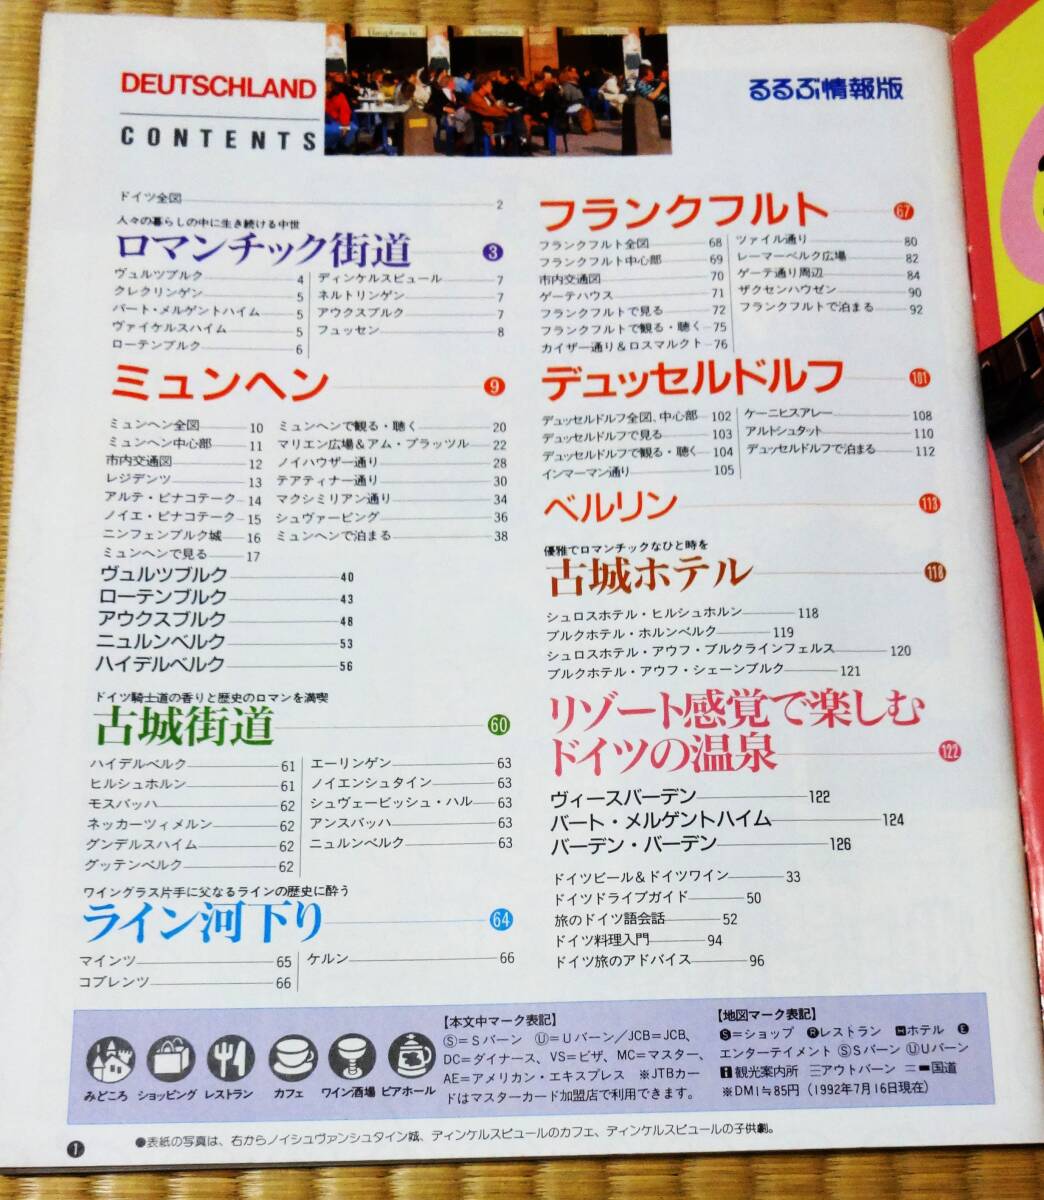 DEUTSCHLAND
CONTENTS
るるぶ情報版
ドイツ全図 2
人々の暮らしの中に生き続ける中世
ロマンチック街道 3
ヴュルツブルク 4
クレクリンゲン 5
バート・メルゲントハイム 5
ヴァイケルスハイム 5
ローテンブルク 6
ディンケルスビュール 7
ネルトリンゲン 7
アウクスブルク 7
フュッセン 8
ミュンヘン 9
ミュンヘン全図 10
ミュンヘン中心部 11
市内交通図 12
レジデンツ 13
アルテ・ピナコテーク 14
ノイエ・ピナコテーク 15
ニンフェンブルク城 16
ミュンヘンで見る 17
ミュンヘンで観る・聴く 20
マリエン広場&アム・プラッツル 22
ノイハウザー通り 28
テアティナー通り 30
マクシミリアン通り 34
シュヴァービング 36
ミュンヘンで泊まる 38
ヴュルツブルク 40
ローテンブルク 43
アウクスブルク 48
ニュルンベルク 53
ハイデルベルク 56
ドイツ騎士道の香りと歴史のロマンを満喫
古城街道 60
ハイデルベルク 61
ヒルシュホルン 61
モスバッハ 62
ネッカーツィメルン 62
グンデルスハイム 62
グッテンベルク 62
エーリンゲン 63
ノイエンシュタイン 63
シュヴェービッシュ・ハル 63
アンスバッハ 63
ニュルンベルク 63
ワイングラス片手に父なるラインの歴史に酔う
ライン河下り 64
マインツ 65
コブレンツ 66
ケルン 66
フランクフルト 67
フランクフルト全図 68
フランクフルト中心部 69
市内交通図 70
ゲーテハウス 71
フランクフルトで見る 72
フランクフルトで観る・聴く 75
カイザー通り&ロスマルクト 76
ツァイル通り 80
レーマーベルク広場 82
ゲーテ通り周辺 84
ザクセンハウゼン 90
フランクフルトで泊まる 92
デュッセルドルフ 101
デュッセルドルフ全図、中心部 102
デュッセルドルフで見る 103
デュッセルドルフで観る・聴く 104
インマーマン通り 105
ケーニヒスアレー 108
アルトシュタット 110
デュッセルドルフで泊まる 112
ベルリン 113
優雅でロマンチックなひと時を
古城ホテル 118
シュロスホテル・ヒルシュホルン 118
ブルクホテル・ホルンベルク 119
シュロスホテル・アウフ・ブルクラインフェルス 120
ブルクホテル・アウフ・シェーンブルク 121
リゾート感覚で楽しむ
ドイツの温泉 122
ヴィースバーデン 122
バート・メルゲントハイム 124
バーデン・バーデン 126
ドイツビール&ドイツワイン 33
ドイツドライブガイド 50
旅のドイツ語会話 52
ドイツ料理入門 94
ドイツ旅のアドバイス 96
みどころ ショッピング レストラン カフェ ワイン酒場 ビアホール
【本文中マーク表記】
Ⓢ=Sバーン Ⓤ=Uバーン/JCB=JCB、
DC=ダイナース、VS=ビザ、MC=マスター、
AE=アメリカン・エキスプレス ※JTBカー
ドはマスターカード加盟店で利用できます。
【地図マーク表記】
S=ショップ Rレストラン Hホテル E
エンターテイメント ⓈSバーン ⓊUバーン
i観光案内所 アウトバーン 国道
※DM1≒85円(1992年7月16日現在)
1 ●表紙の写真は、右からノイシュヴァンシュタイン城、ディンケルスビュールのカフェ、ディンケルスビュールの子供劇。